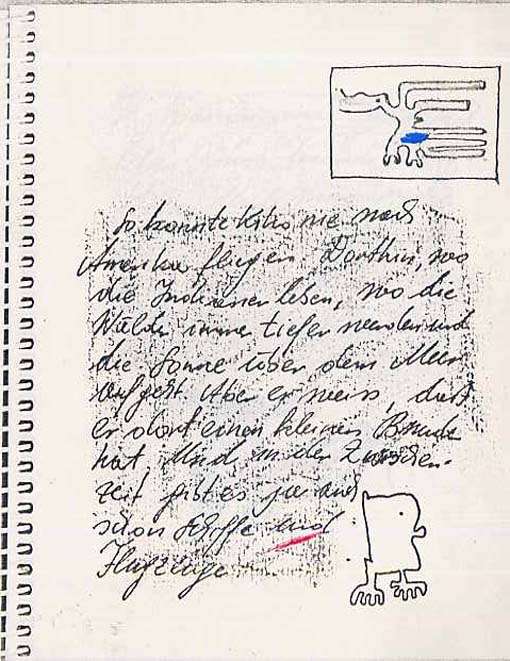 So konnte Kiko nie nach
Amerika fliegen. Dorthin, wo
die Indianer leben, wo die
Wälder immer tiefer werden und
die Sonne über dem Meer
aufgeht. Aber er weiss, dass
er dort einen kleinen Bruder
hat. Und in der Zwischen-
zeit gibt es ja auch
schon Schiffe und
Flugzeuge.